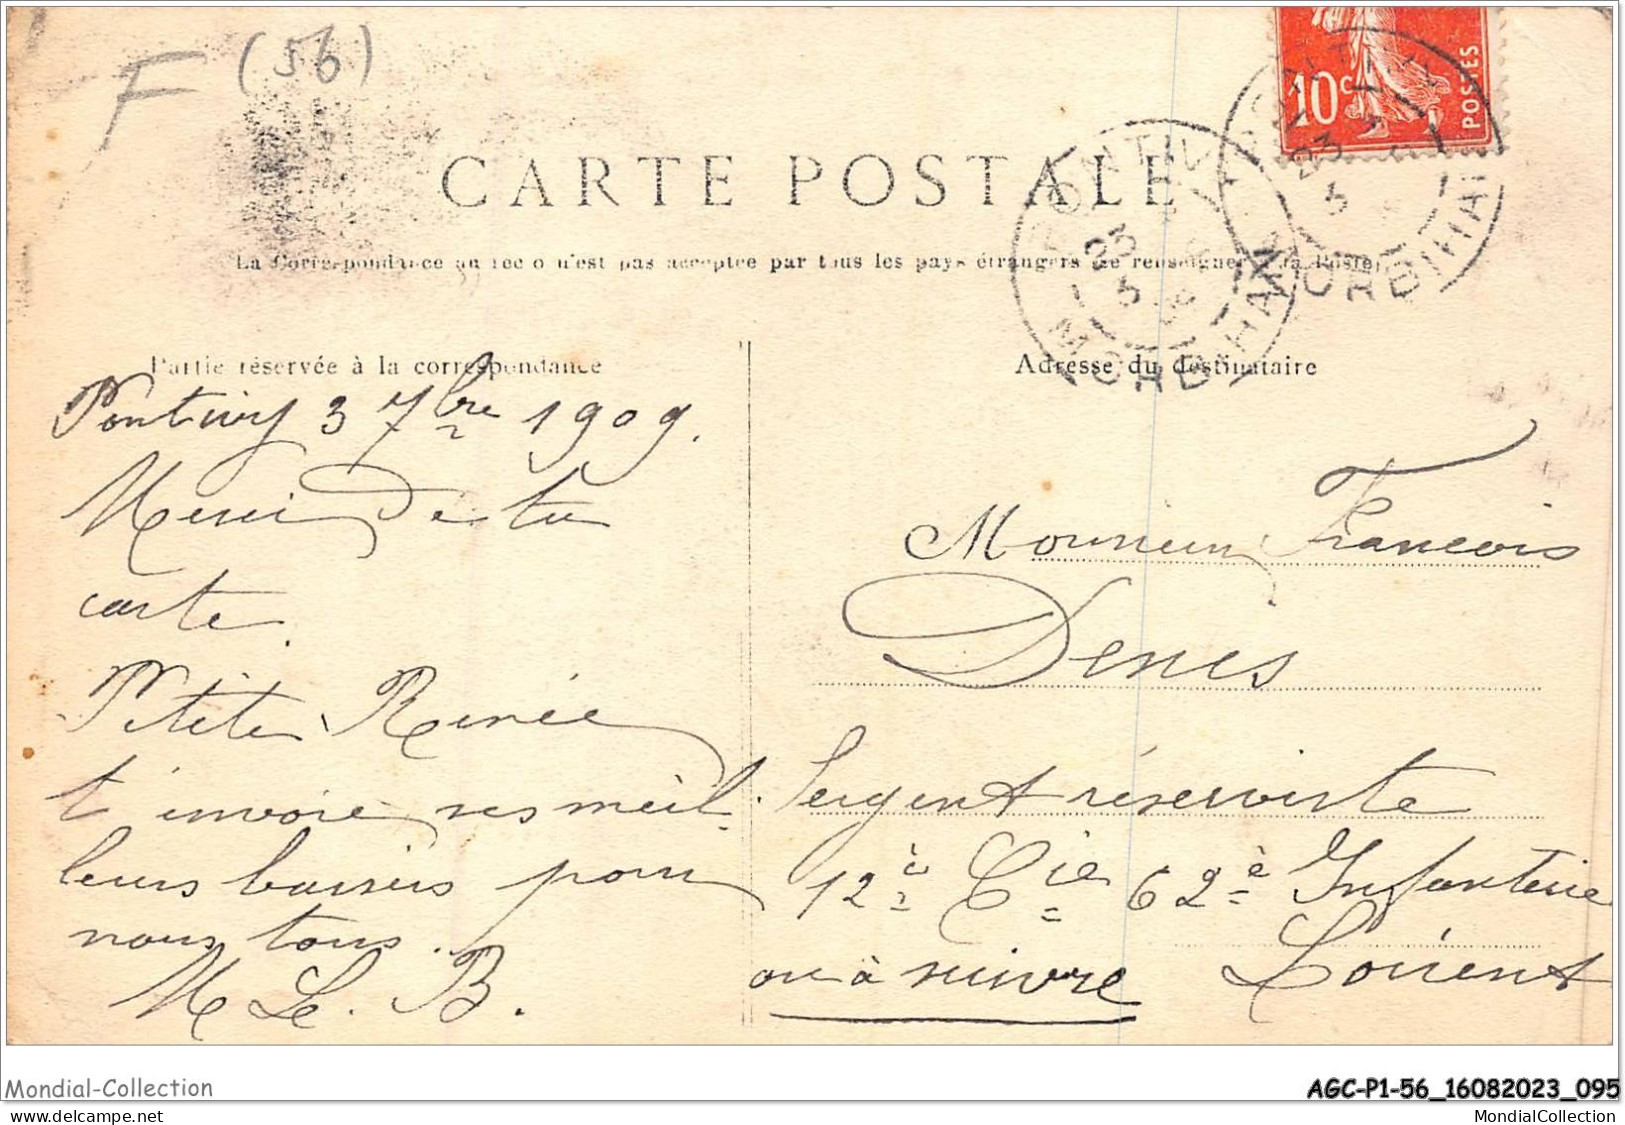 F (56)
10c POSTES
CARTE POSTALE
PONTIVY
23
5
MORBIHAN
MORBIHAN
La Correspondance au recto n'est pas acceptée par tous les pays étrangers (Se renseigner à la Poste)
Partie réservée à la correspondance
Pontivy 3 7bre 1909.
Merci de ta
carte.
Petite Renée
t'envoie ses meil-
leurs baisers pour
nous tous.
M Le. B.
Adresse du destinataire
Monsieur Francois
Denis
Sergent réserviste
12è Cie 62è Infanterie
ou à suivre Lorient
Mondial-Collection
AGC-P1-56_16082023_095
MondialCollection